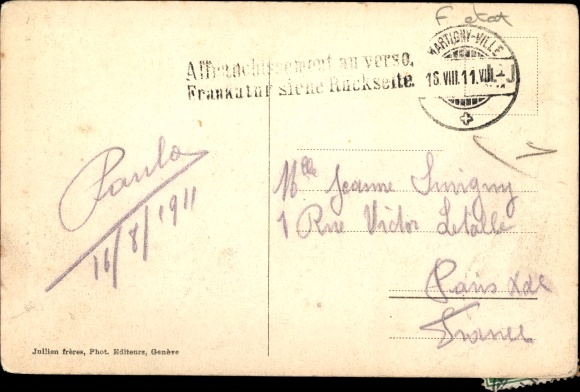 F etat
Affranchissement au verso.
Frankatur siehe Rückseite.
MARTIGNY-VILLE
16.VIII.11.VIII.
Paula
16/8/1911
Mlle Jeanne Juvigny
1 Rue Victor Letalle
Paris XXe
France
Jullien frères, Phot. Editeurs, Genève